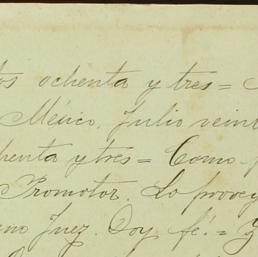 tos ochenta y tres =
México, Julio veint
henta y tres = Como
Promotor. Lo provey
eno Juez. Doy fé. =